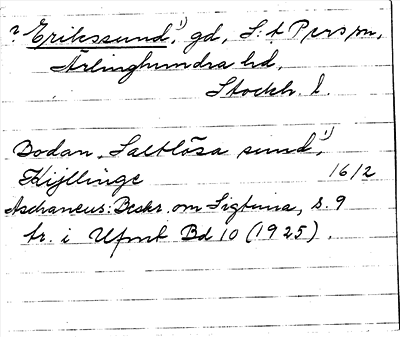 ? Erikssund,¹⁾ gd, S:t Pers sn,
Ärlinghundra hd,
Stockh. l.
Bodan, Saltlösa sund,¹⁾
Kijllinge 16/2
Aschaneus: Beskr. om Sigtuna, s. 9
tr. i Ufmt Bd 10 (1925).